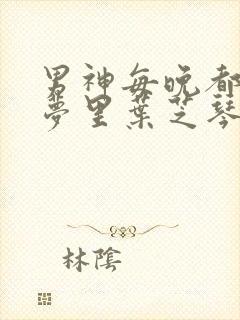 男神每晚都
夢里葉芝琴
林陰